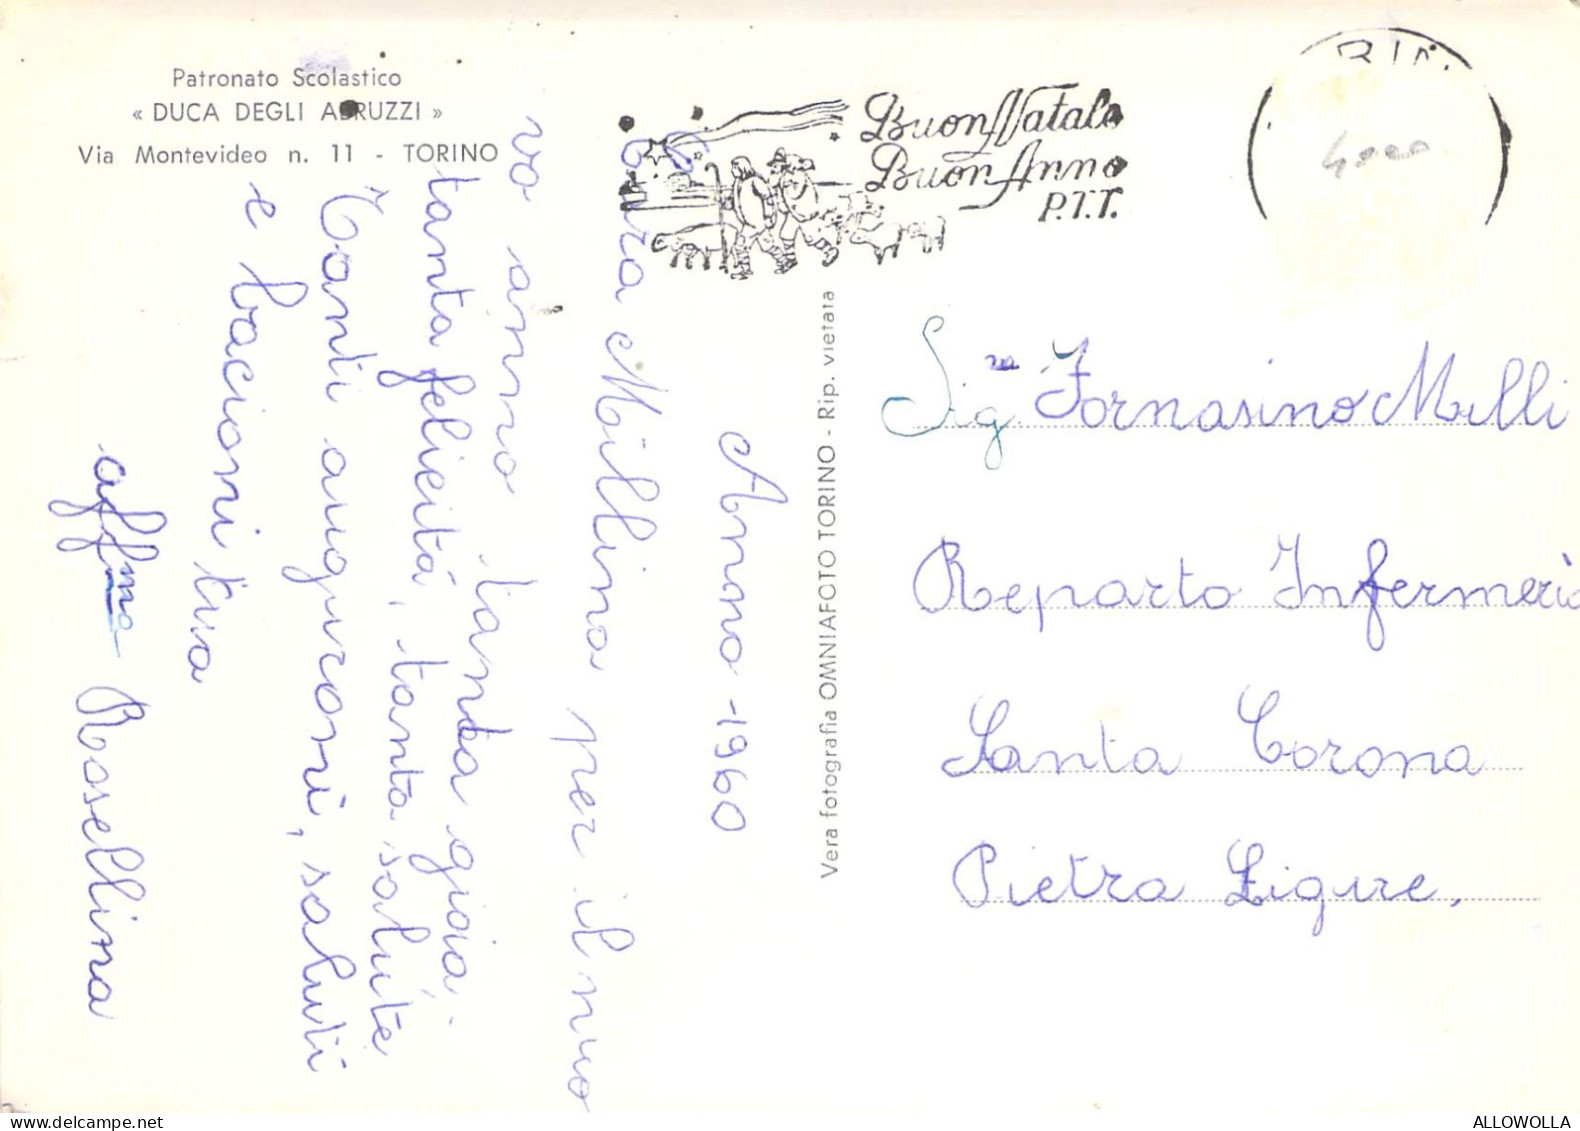 Patronato Scolastico
« DUCA DEGLI ABRUZZI »
Via Montevideo n. 11 - TORINO
Buon Natale
Buon Anno
P.T.T.
4000
Anno - 1960
Cara Millina per il nuo
vo anno tanta gioia.
tanta felicitá, tanta salute
Tanti auguroni, saluti
e bacioni tua
affma Rosellina
Vera fotografia OMNIAFOTO TORINO - Rip. vietata
Sig.na Fornasino Milli
Reparto Infermeria
Santa Corona
Pietra Ligure.
ALLOWOLLA